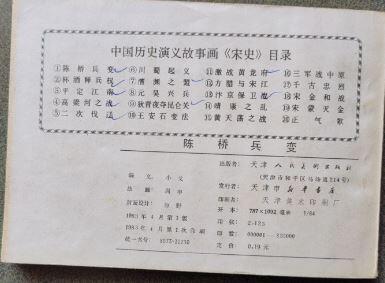 中国历史演义故事画《宋史》目录
①陈桥兵变 ⑥川蜀起义 ⑪激战黄龙府 ⑯三军战中原
②杯酒释兵权 ⑦澶渊之盟 ⑫方腊与宋江 ⑰千古忠烈
③平定江南 ⑧元昊兴兵 ⑬汴京保卫战 ⑱宋金和战
④高梁河之战 ⑨狄青夜夺昆仑关 ⑭靖康之乱 ⑲宋蒙灭金
⑤二次伐辽 ⑩王安石变法 ⑮黄天荡之战 ⑳正气歌
陈桥兵变
出版者: 天津人民美术出版社
(天津市和平区马场道214号)
发行者: 天津市新华书店
印刷者: 天津美术印刷厂
开本: 787×1092 毫米 1/64
印张: 2.125
印数:
定价: 0.19元
编文: 小文
绘画:
封面设计:
1983年4月第1版
1983年4月第1次印刷
统一书号: 8073·21230